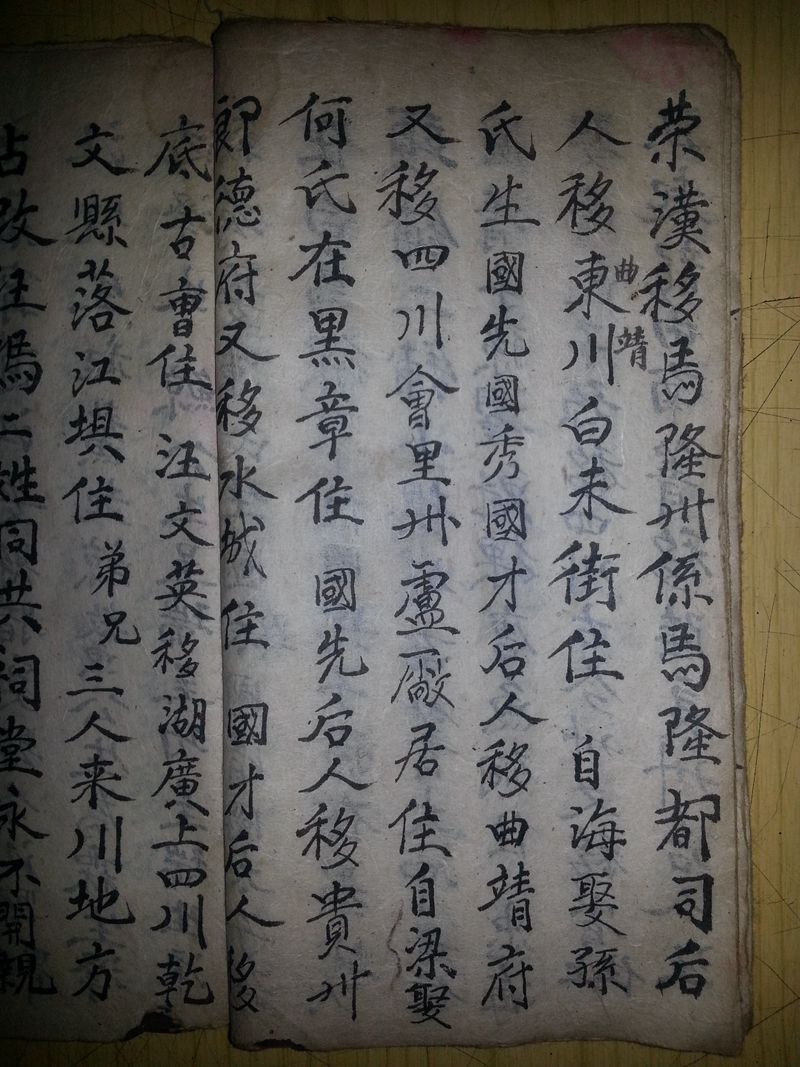 荣漢移馬隆卅係馬隆都司后
曲靖
人移東川白未街住 自海娶孫
氏生國先國秀國才后人移曲靖府
又移四川會里卅盧厰居住自梁娶
何氏在黑章住 國先后人移貴卅
郎德府又移水城住 國才后人移
底古曹住 汪文英移湖廣上四川乾
文縣落江埧住 弟兄三人来川地方
占改汪馮二姓同共祠堂永不開親